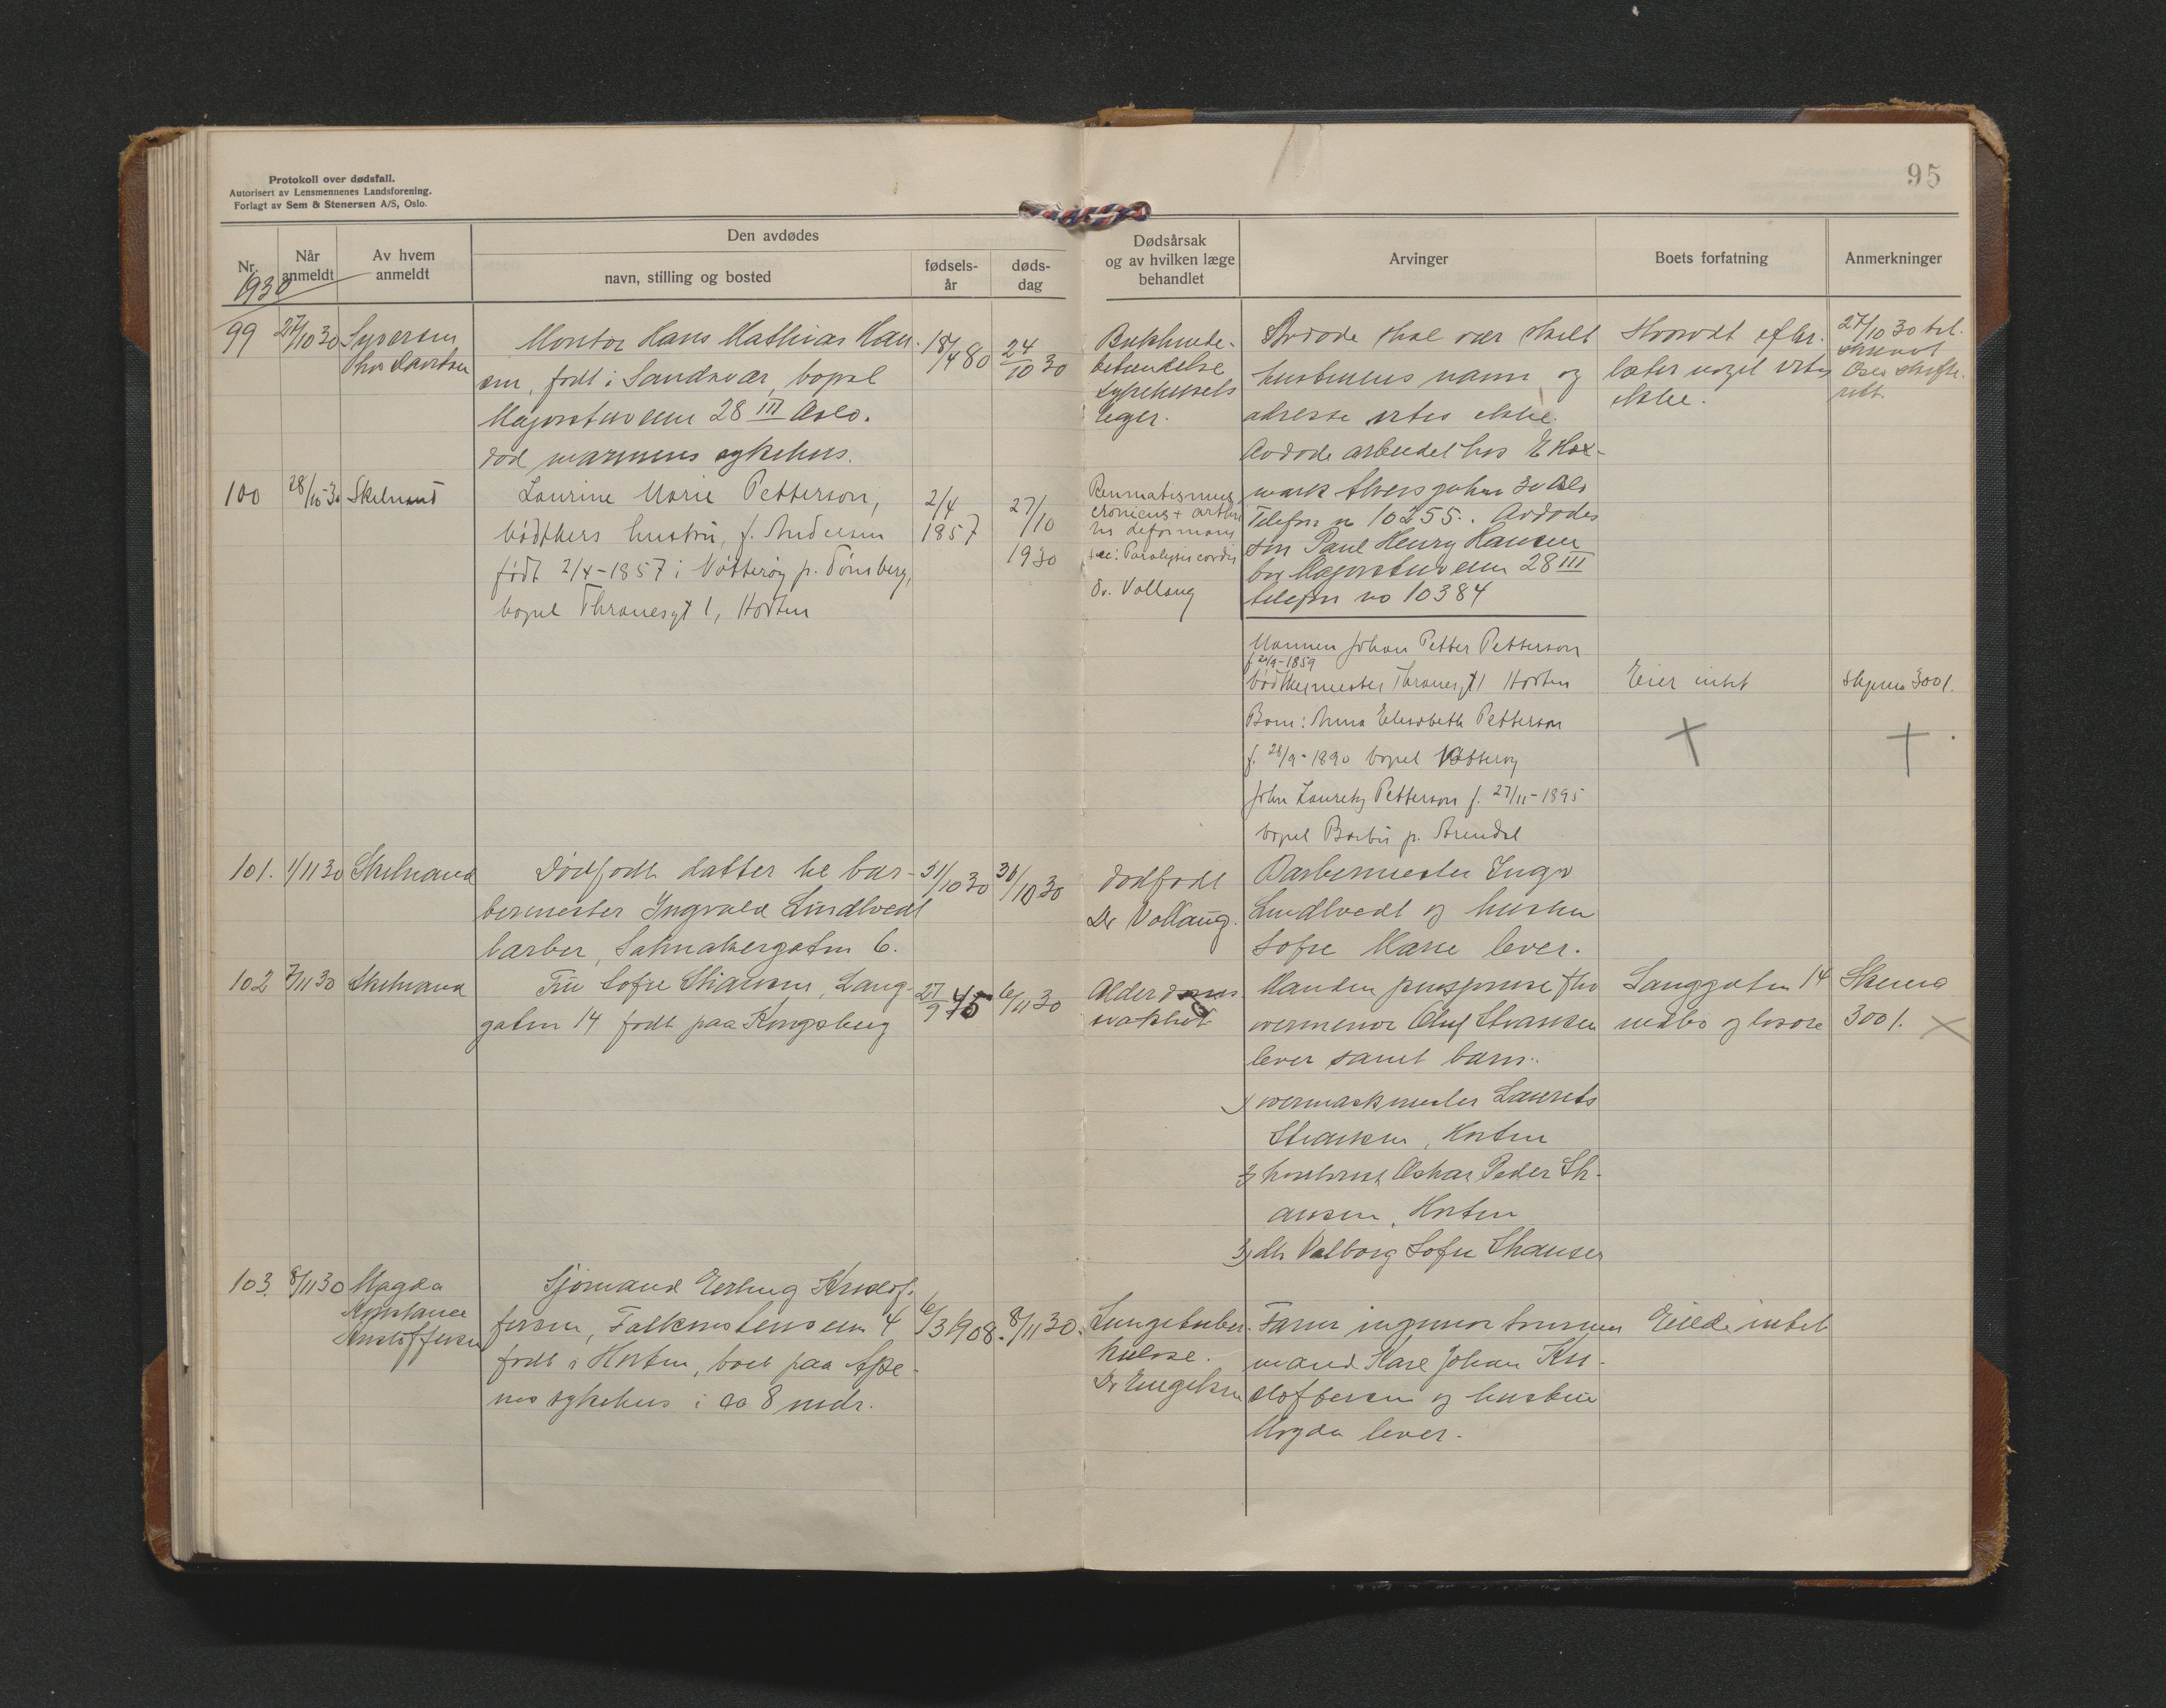 Protokoll over dødsfall.
Autorisert av Lensmennenes Landsforening.
Forlagt av Sem & Stenersen A/S, Oslo.
95
Nr.
Når anmeldt
Av hvem anmeldt
Den avdødes
navn, stilling og bosted
fødsels-år
døds-dag
Dødsårsak
og av hvilken læge
behandlet
Arvinger
Boets forfatning
Anmerkninger
1930
99 27/10 30 Syversen
Montør Hans Mathias Han-
sen, født i Sandsvær, bopel
Majorstuveien 28 III Oslo.
død marinens sykehus.
18/4 80
24/10 30
Bukhinde-
betændelse
sykehusets
leger.
Avdøde skal vær skilt
hustruens navn og
adresse vites ikke.
Avdøde arbeidet hos E
30 Oslo
Telefon no 10255. Avdødes
søn Paul Henry Hansen
bor Majorstuveien 28 III
telefon no 10384
Hvorvidt efter-
later noget vites
ikke.
27/10 30 tel.
Oslo skifte-
rett.
100 28/10-30 Skelnand
Laurine Marie Petterson,
bødkers hustru, f. Andersen
født 2/4-1857 i Nøtterøy p. Tønsberg,
bopel Thranesgt 1, Horten
2/4
1857
27/10
1930
Reumatismus
cronicus + arthri
tis deformans
Paralysis cordis
Dr. Vollaug
Mannen Johan Petter Petterson
bødkermester Thranesgt 1 Horten
Barn: Anna Elisabeth Petterson
f. 28/9-1890 bopel Nøtterøy
John Lauritz Petterson f. 27/11-1895
bopel Barbu p. Arendal
Eier intet
300/.
101. 1/11 30 Skelnand
Dødfødt datter til bar-
bermester Ingvald Lindtvedt
barber, Salmakergaten 6.
31/10 30
31/10 30
Dødfødt
Dr Vollaug.
Barbermester Ingv
Lindtvedt og hustru
Sofie Marie lever.
102 7/11 30 Skelnand
Fru Sofie Skiansen, Lang-
gaten 14 født paa Kongsberg
27/9 45
6/11 30
Alderdoms
svakhet
Manden pensjonist
Oluf
lever samt barn:
1) Laurits
Horten
2) Oskar Peder Sk-
ansen, Horten
3) Valborg Sofie
Langgaten 14
indbo og løsøre
300/.
103. 8/11 30 Magda
Konstance
Kristoffersen
Sjømand Erling Kristof-
fersen, Falkenstensveien 4
født i Horten, boet paa Aspe-
nes sykehus i ca 8 mdr.
6/3 1908.
8/11 30.
Lungetuber-
kulose.
Dr Engelsen
mand Karl Johan Kri-
stoffersen og hustru
Magda lever.
Eiede intet